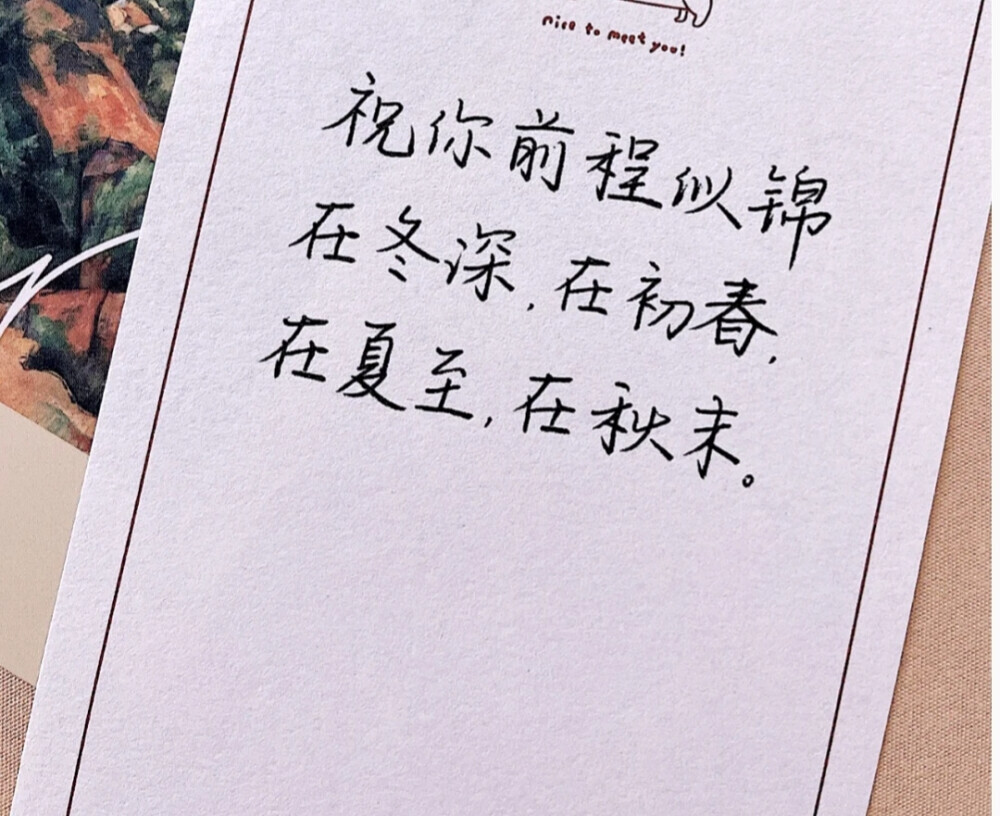 nice to meet you!
祝你前程似锦
在冬深,在初春,
在夏至,在秋末。